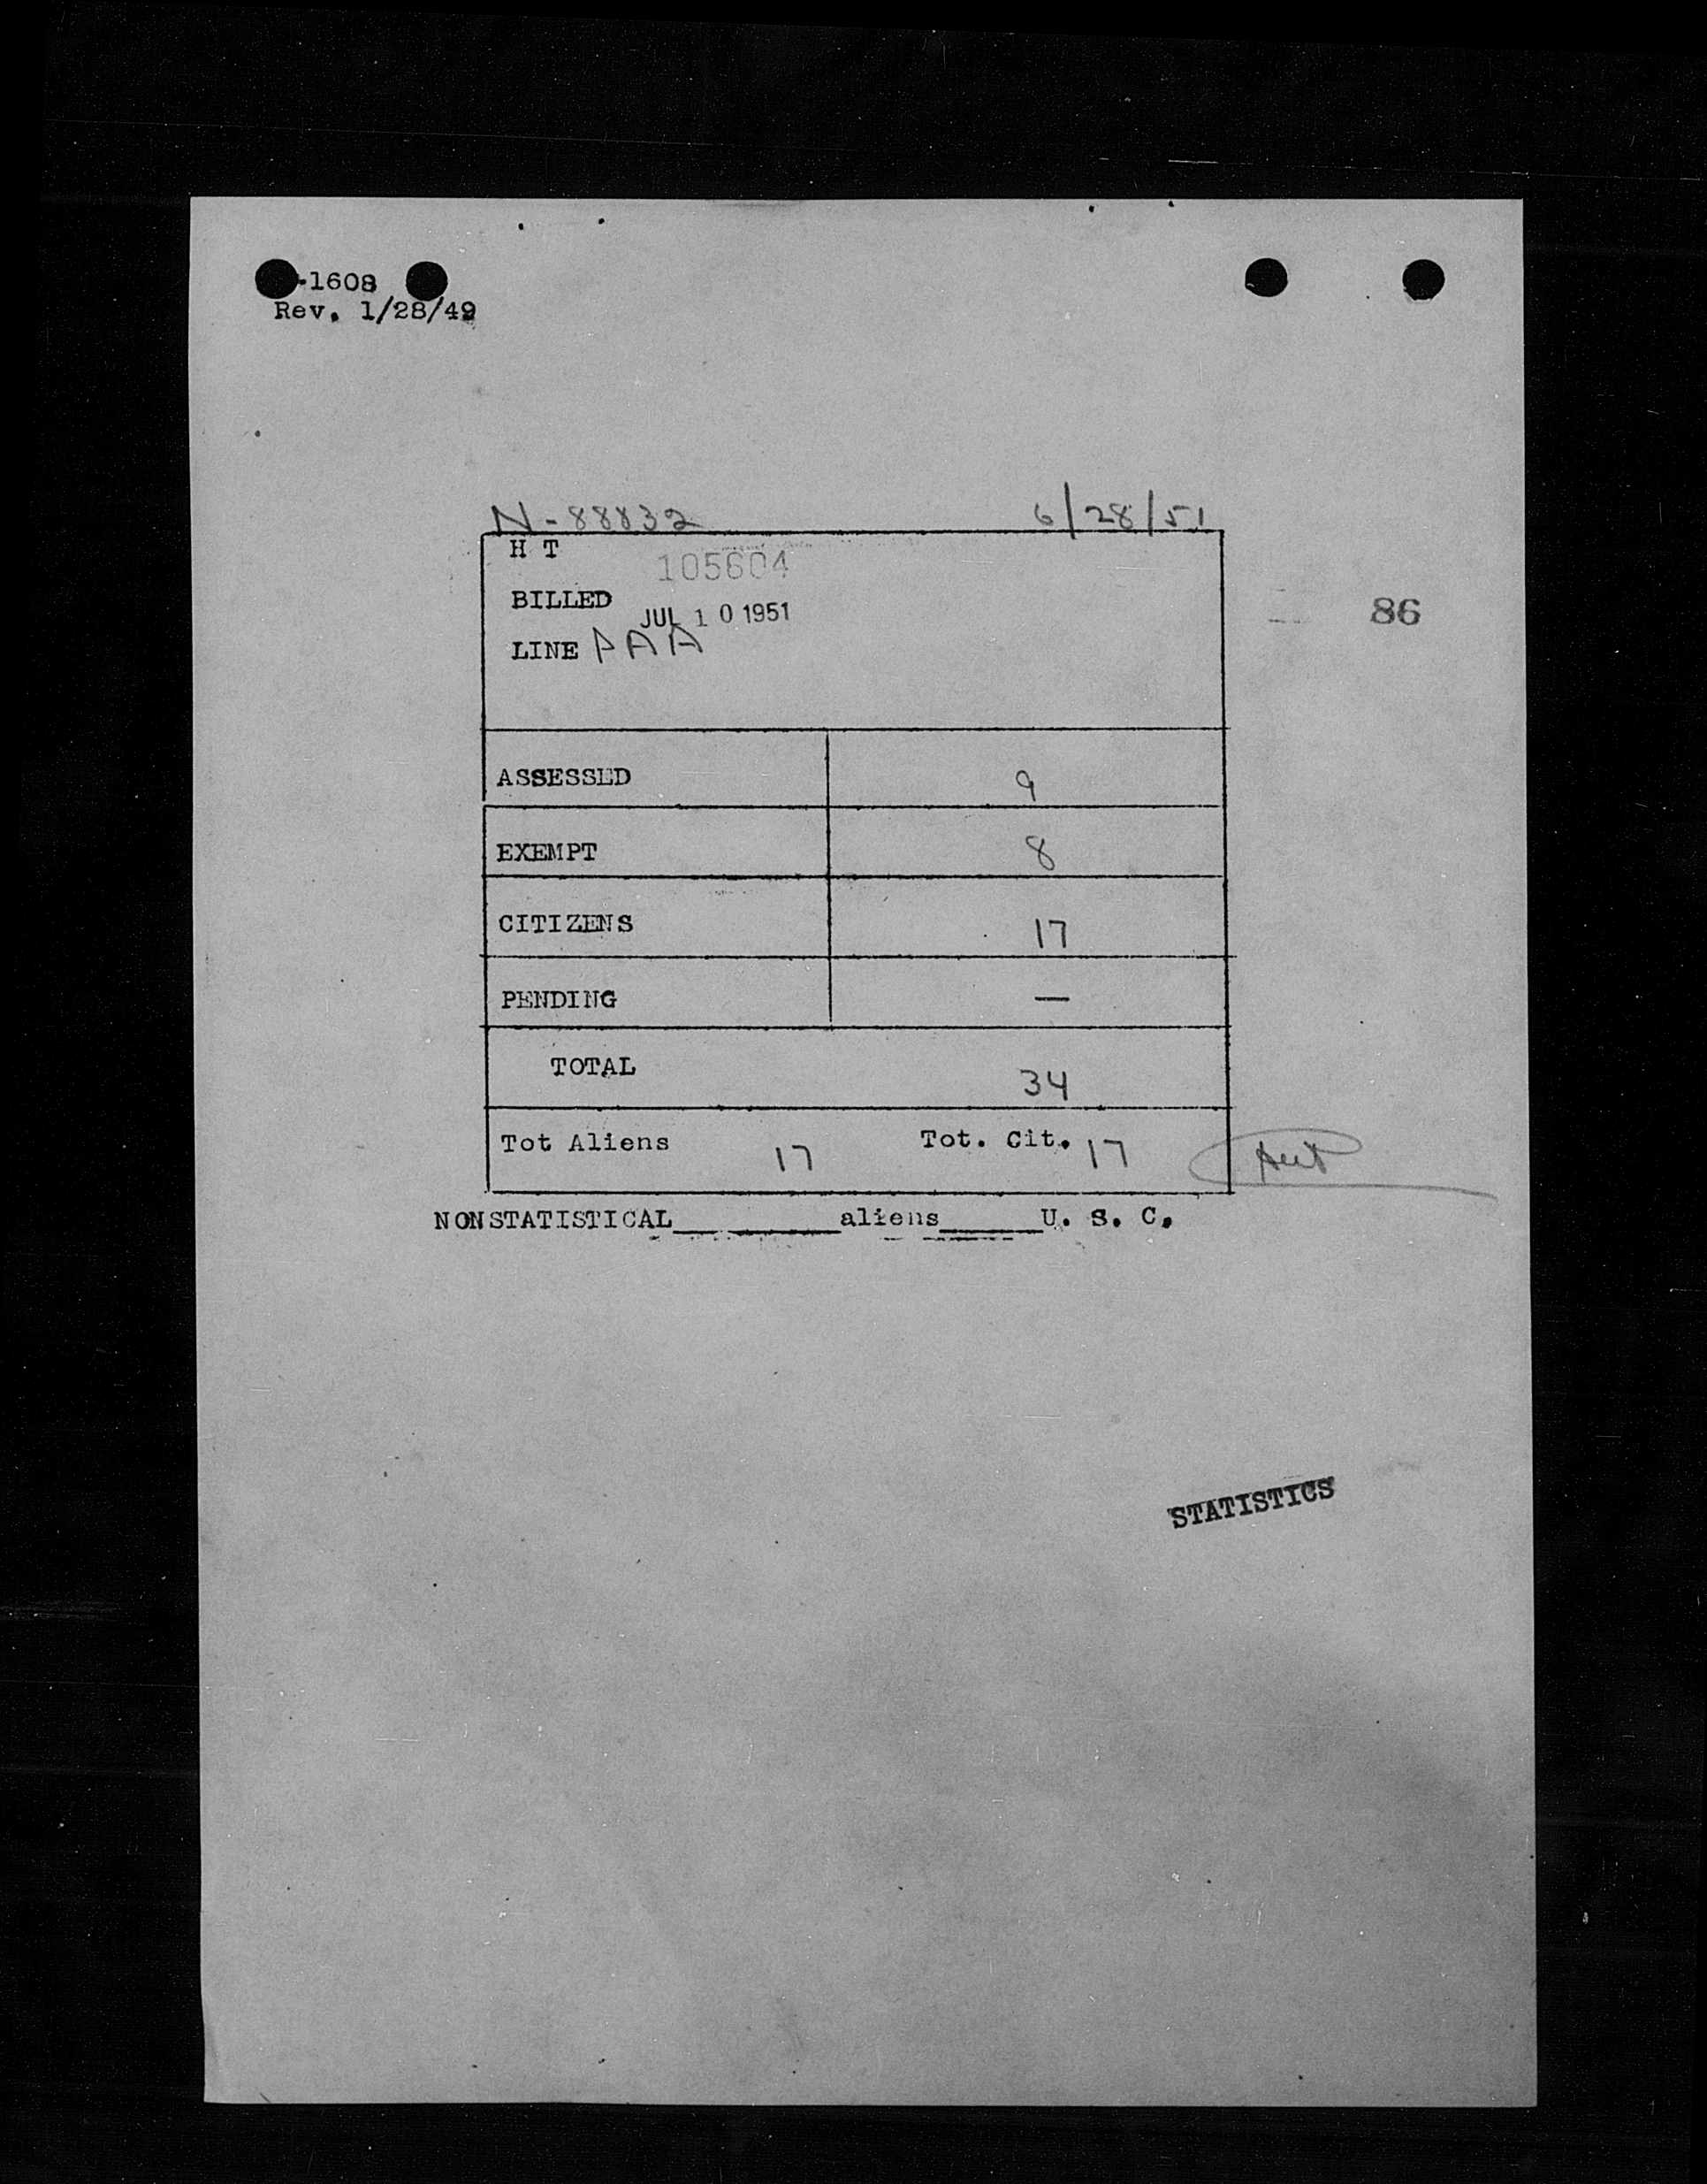 -1608
Rev. 1/28/49
N-88832 6/28/51
H T 105604
BILLED JUL 10 1951
86
LINE PAA
ASSESSED 9
EXEMPT 8
CITIZENS 17
PENDING —
TOTAL 34
Tot Aliens 17 Tot. Cit. 17
NONSTATISTICAL________aliens_____U. S. C.
STATISTICS